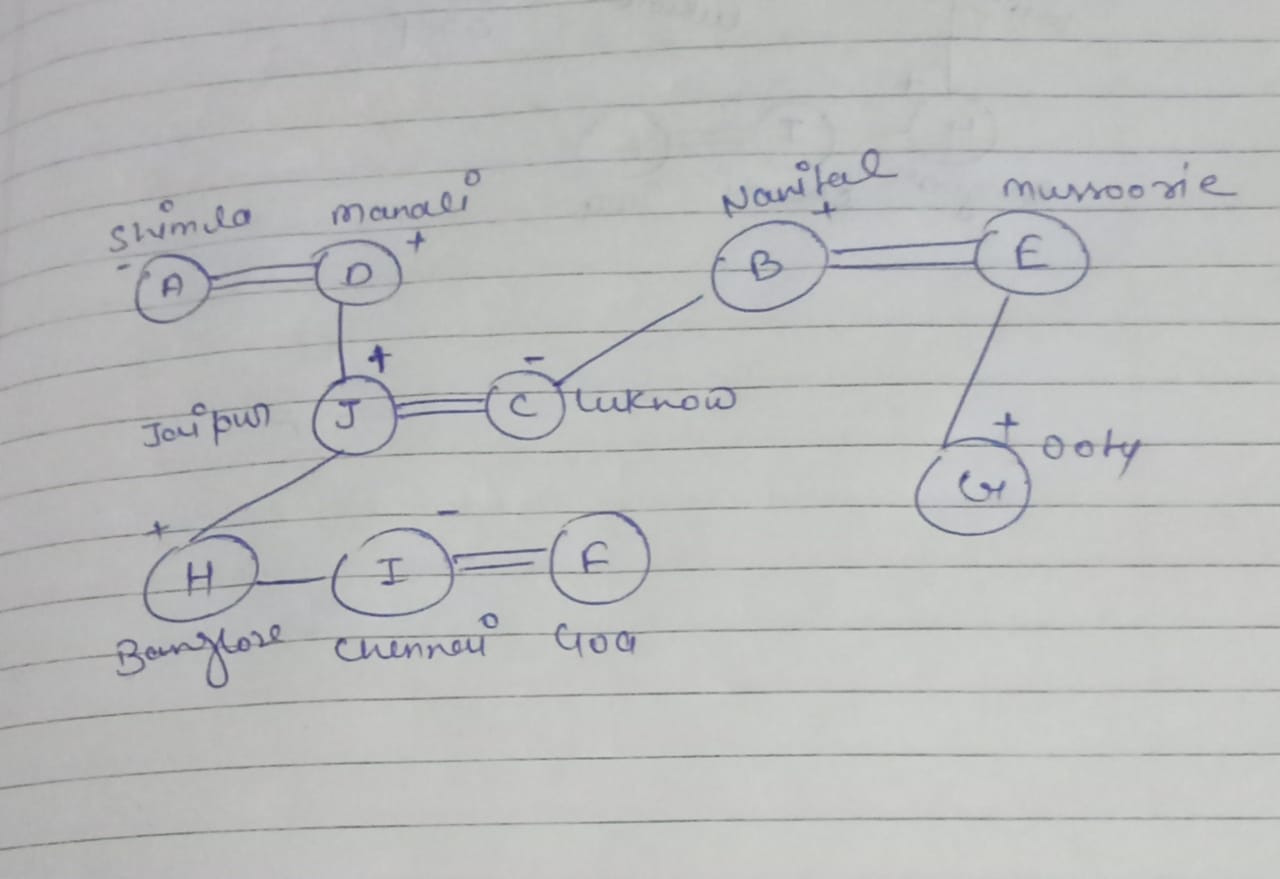 Shimla manali Nanital mussoorie
- + +
A D B E
+ -
Jaipur J C luknow
+ ooty
G
+ -
H I F
Banglore chennai Goa